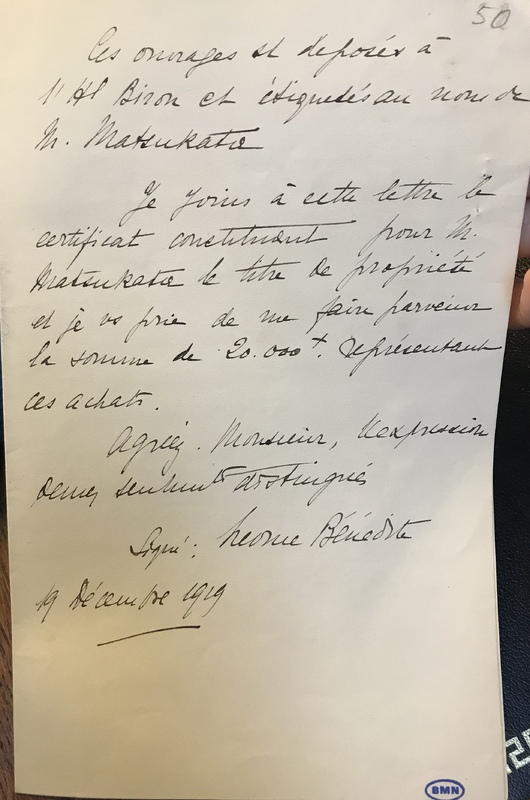 50
Ces ouvrages st deposés à
l'Hl Biron et étiquetés au nom de
M. Matsukata
Je joins à cette lettre le
certificat constituant pour M.
Matsukata le titre de propriété
et je vs prie de me faire parvenir
la somme de 20.000 f. représentant
ces achats.
Agréez. Monsieur, l'expression
de mes sentimts distingués
Signé: Léonce Bénédite
19 Décembre 1919
BMN